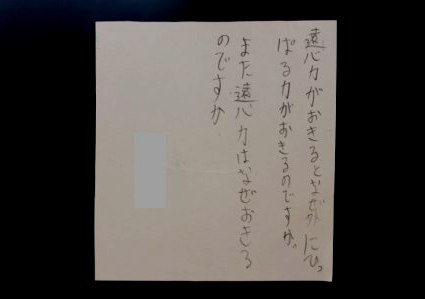 遠心力がおきるとなぜ外にひっ
ぱる力がおきるのですか。
また遠心力はなぜおきる
のですか